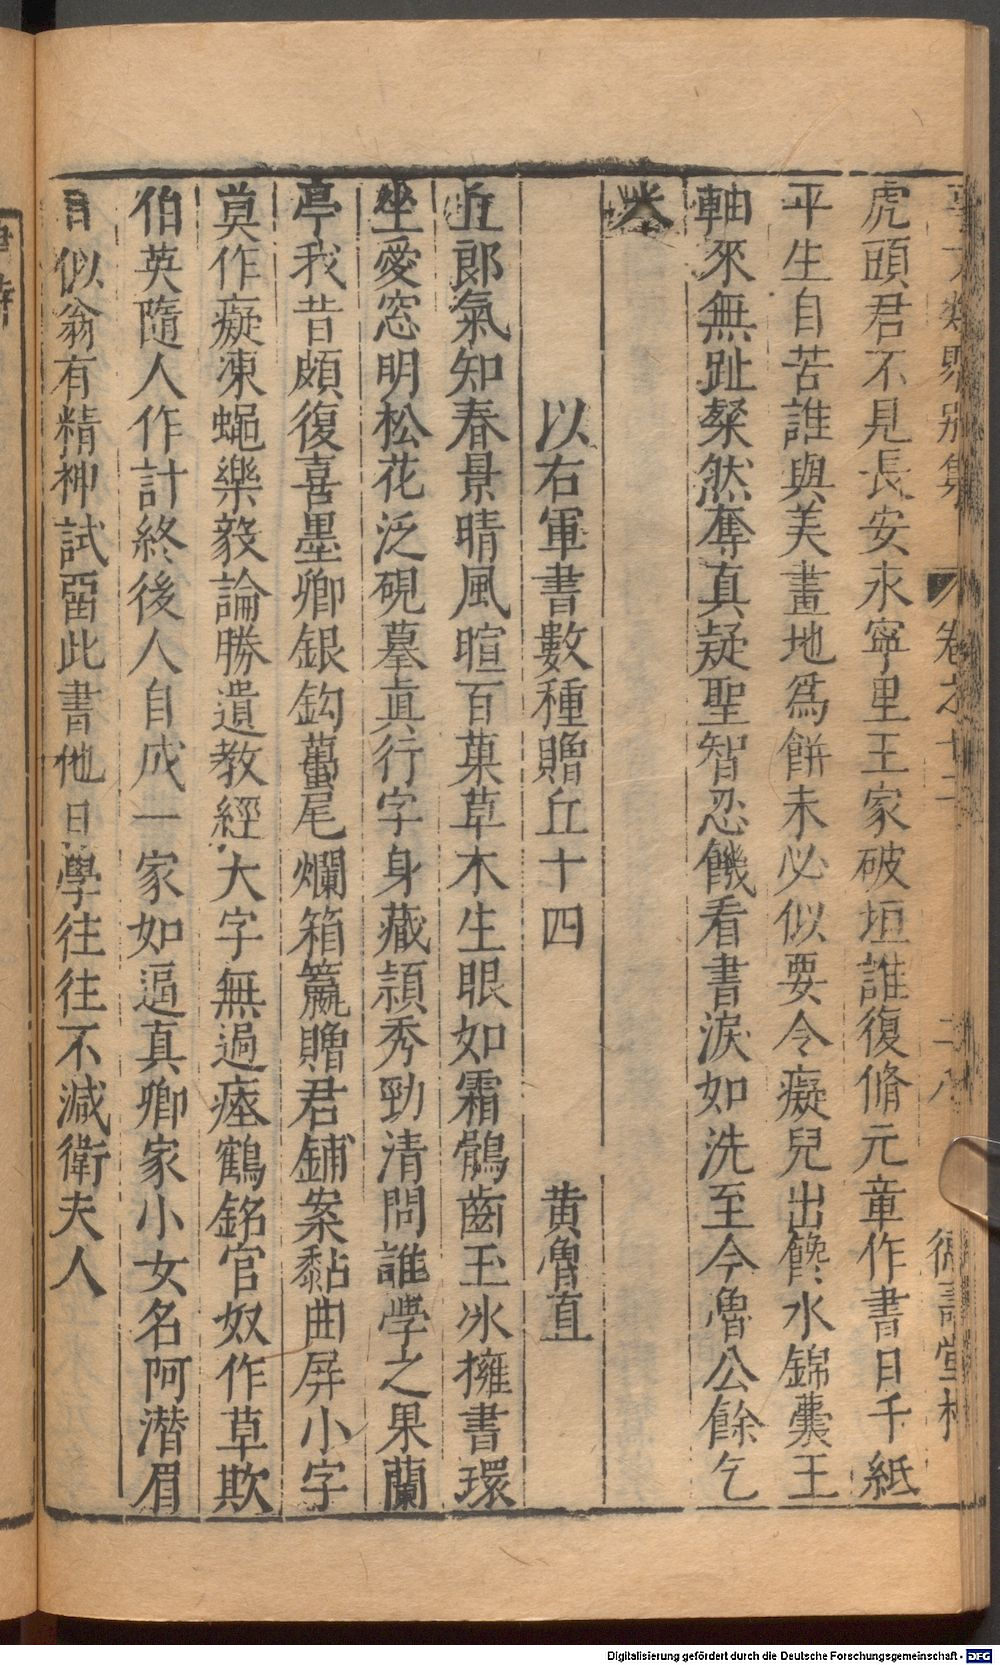 事文類聚別集 卷之十二 二八 德壽堂梓
虎頭君不見長安永寧里王家破垣誰復脩元章作書日千紙
平生自苦誰與美畫地爲餅未必似要令癡兒出饞水錦囊玉
軸來無趾粲然奪真疑聖智忍饑看書淚如洗至今魯公餘乞
米
以右軍書數種贈丘十四 黄魯直
丘郎氣如春景晴風暄百菓草木生眼如霜鶻齒玉冰擁書環
坐愛窓明松花泛硯摹真行字身藏頴秀勁清問誰學之果蘭
亭我昔頗復喜墨卿銀鈎蠆尾爛箱籯贈君鋪案黏曲屏小字
莫作癡凍蠅樂毅論勝遺教經大字無過瘞鶴銘官奴作草欺
伯英隨人作計終後人自成一家如逼真卿家小女名阿潛眉
目似翁有精神試畱此書他日學往往不減衛夫人
Digitalisierung gefördert durch die Deutsche Forschungsgemeinschaft - DFG